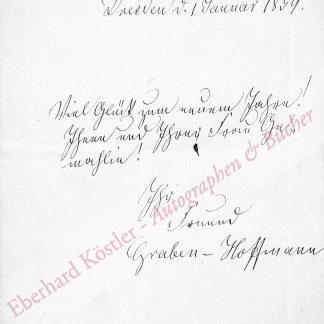 Dresden d. 1 Januar 1859.
Viel Glück zum neuem Jahre!
Ihnen und Ihrer Frau Ge-
mahlin!
Ihr
Freund
Graben-Hoffmann
Eberhard Köstler - Autographen & Bücher